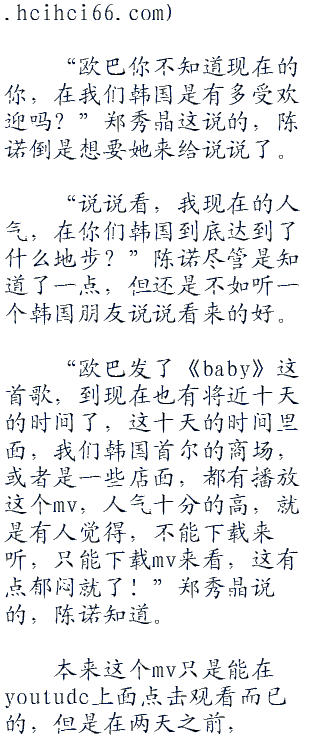 .hcihci66.com)
“欧巴你不知道现在的
你，在我们韩国是有多受欢
迎吗？”郑秀晶这说的，陈
诺倒是想要她来给说说了。
“说说看，我现在的人
气，在你们韩国到底达到了
什么地步？”陈诺尽管是知
道了一点，但还是不如听一
个韩国朋友说说看来的好。
“欧巴发了《baby》这
首歌，到现在也有将近十天
的时间了，这十天的时间里
面，我们韩国首尔的商场，
或者是一些店面，都有播放
这个mv，人气十分的高，就
是有人觉得，不能下载来
听，只能下载mv来看，这有
点郁闷就了！”郑秀晶说
的，陈诺知道。
本来这个mv只是能在
youtudc上面点击观看而已
的，但是在两天之前，